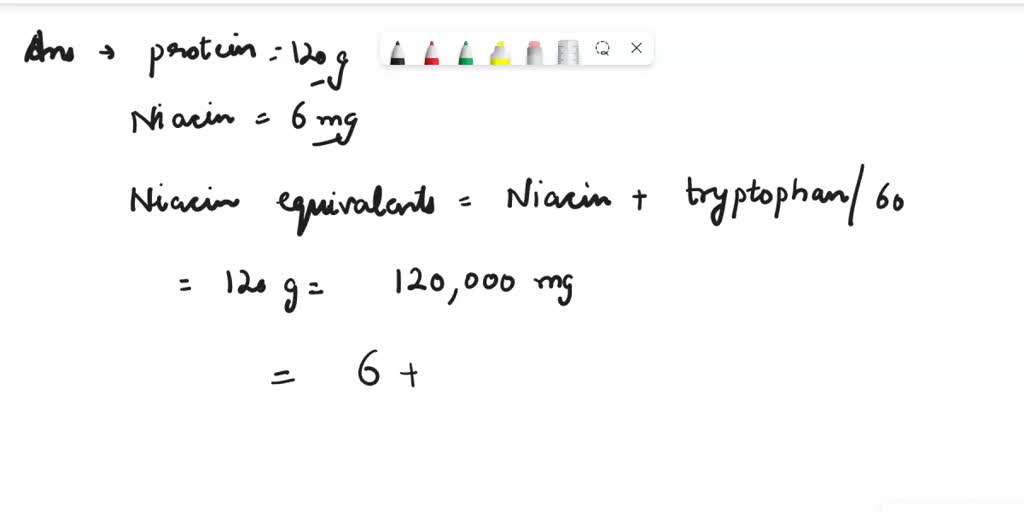 Ans → protein = 120 g
Niacin = 6 mg
Niacin equivalents = Niacin + tryptophan/60
= 120 g = 120,000 mg
= 6 +